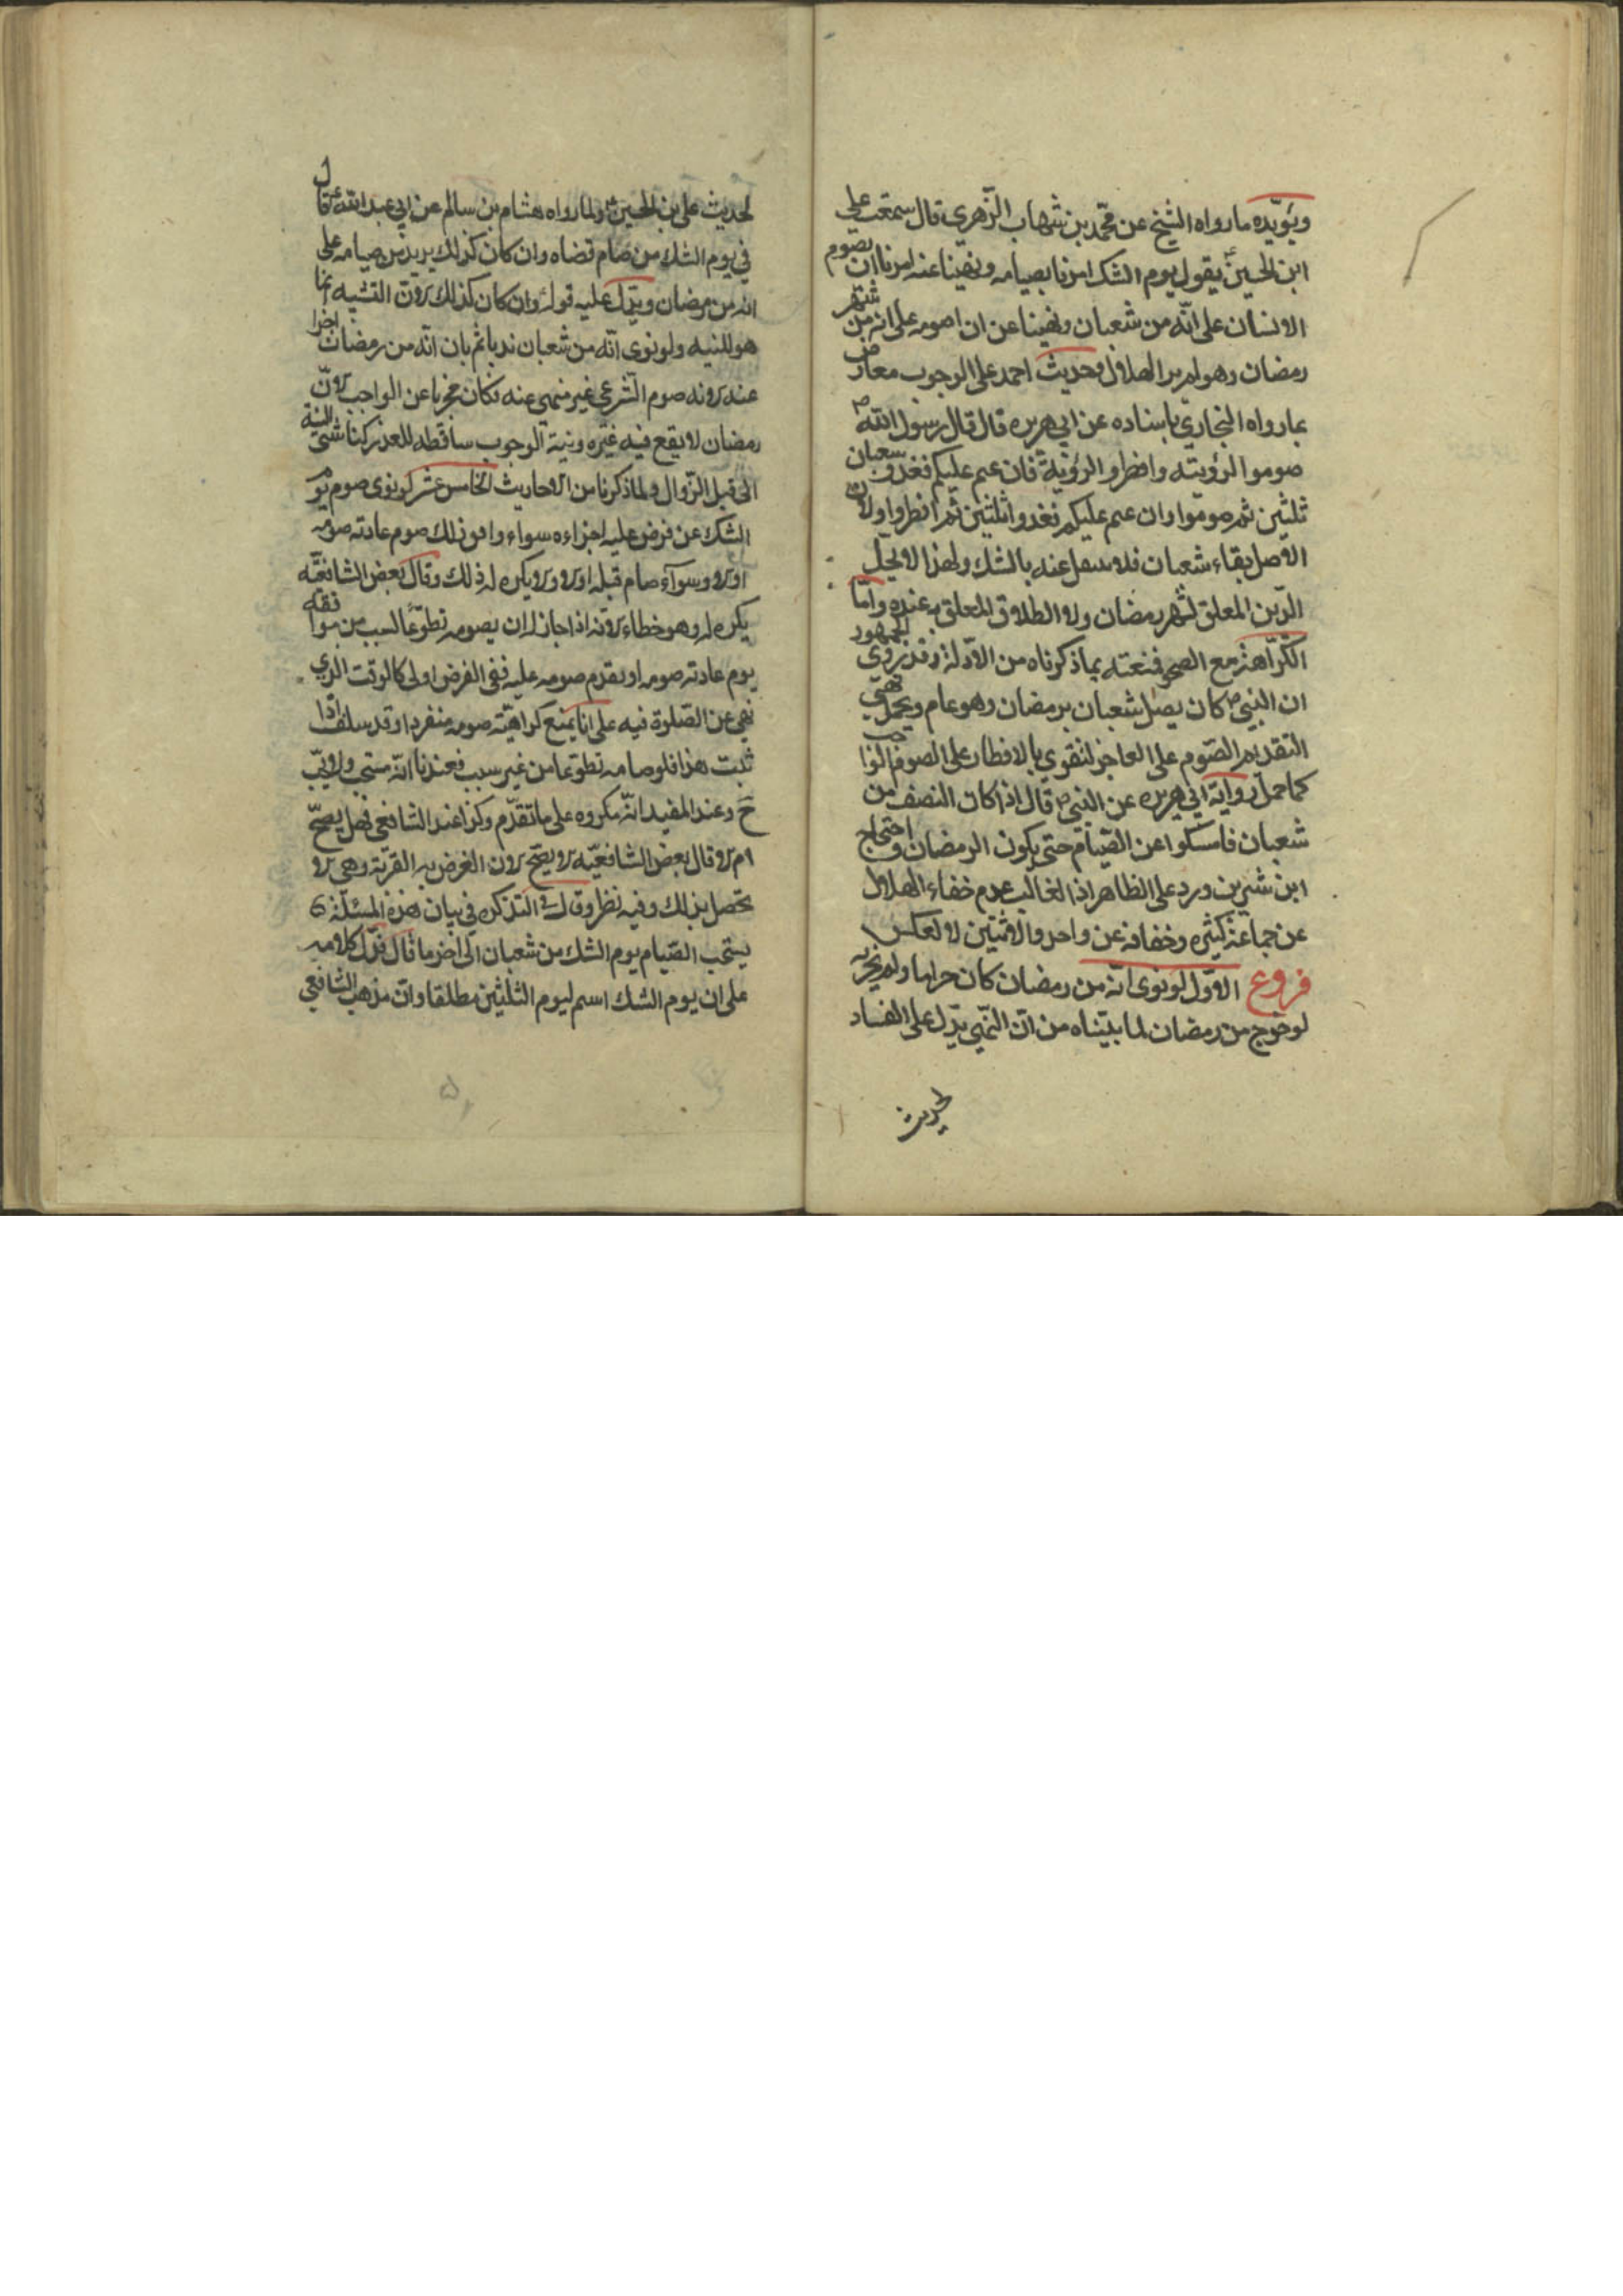 ويؤيّده ما رواه الشيخ عن محمّد بن شهاب الزّهري قال سمعت علي
ابن الحسين ع يقول يوم الشك امرنا بصيامه ونهينا عنه امرنا ان يصوم
الانسان على انّه من شعبان ونهينا عن ان اصومه على انه من شهر
رمضان وهو لم ير الهلال وحديث احمد على الوجوب معارض
بما رواه البخاري باسناده عن ابي هريره قال قال رسول الله ص
صوموا لرؤيته وافطروا لرؤيته فان غم عليكم فغدوا شعبان
ثلثين ثم صوموا وان غم عليكم فغدوا ثلثين ثم افطروا ولان
الاصل بقاء شعبان فلا عنه بالشك ولهذا لا يحل
الدّين المعلق لشهر رمضان ولا الطلاق المعلق به عنده وامّا
الكراهة مع الصحو فمنعته بما ذكرناه من الادلة وقد روى الجمهور
ان النبي ص كان يصل شعبان برمضان وهو عام ويحمل نهي
التقديم الصّوم على العاجز لتقوى بالافطار على الصوم الواجب
كما حمل رواية ابي هريره عن النبي ص قال اذا كان النصف من
شعبان فامسكوا عن الصيام حتى يكون الرمضان واحتجاج
ابن شيرين ورد على الظاهر اذ الغالب عدم خفاء الهلال
عن جماعة كثيره وخفائه عن واحد والاثنين لا لعكس
فروع الاوّل لو نوى انّه من رمضان كان حراما ولم يجزيه
لو خرج من رمضان لما بيّناه من انّ النّهي يدّل على الفساد
لحديث
لحديث علي بن الحسين ع ولما رواه هشام بن سالم عن ابي عبد الله ع قال
في يوم الشك من صام قضاه وان كان كذلك يريد من صيامه على
انه من رمضان ويدّل عليه قوله وان كان كذلك لانّ التشبيه انما
هو للنيه ولو نوى انّه من شعبان ندبا ثم بان انّه من رمضان اجزا
عنه لانه صوم الشرعي غير منهي عنه فكان مجزيا عن الواجب لانّ
رمضان لا يقع فيه غيره ونية الوجوب ساقطه للعذر كناسي النية
الى قبل الزّوال ولما ذكرنا من الاحاديث الخامس عشر لو نوى صوم يوم
الشك عن فرض عليه اجزاءه سواء وافق ذلك صوم عادته صومه
او لا وسوآء صام قبله او لا ولا يكره له ذلك وقال بعض الشافعيّه
يكره له وهو خطاء لانه اذا جاز له ان يصومه تطوّعا لسبب من موافقه
يوم عادته صومه او يقدم صومه عليه ففي الفرض اولى كالوقت الذي
نهي عن الصّلوة فيه على انا نمنع كراهيّة صومه منفردا وقد سلف اذا
ثبت هذا فلو صامه تطوّعا من غير سبب فعندنا انّه مستحب
ح وعند المفيد انّه مكروه على ما تقدّم وكذا عند الشافعي فهل يصحّ
ام لا قال بعض الشافعيّه لا يصحّ لان الغرض به القربة وهي لا
تحصل بذلك وفيه نظر وقال في التذكره في بيان هذه المسئلة
يستحب الصّيام يوم الشك من شعبان الى اخر ما قال فدّل كلامه
على ان يوم الشك اسم ليوم الثلثين مطلقا وانّ مذهب الشافعي